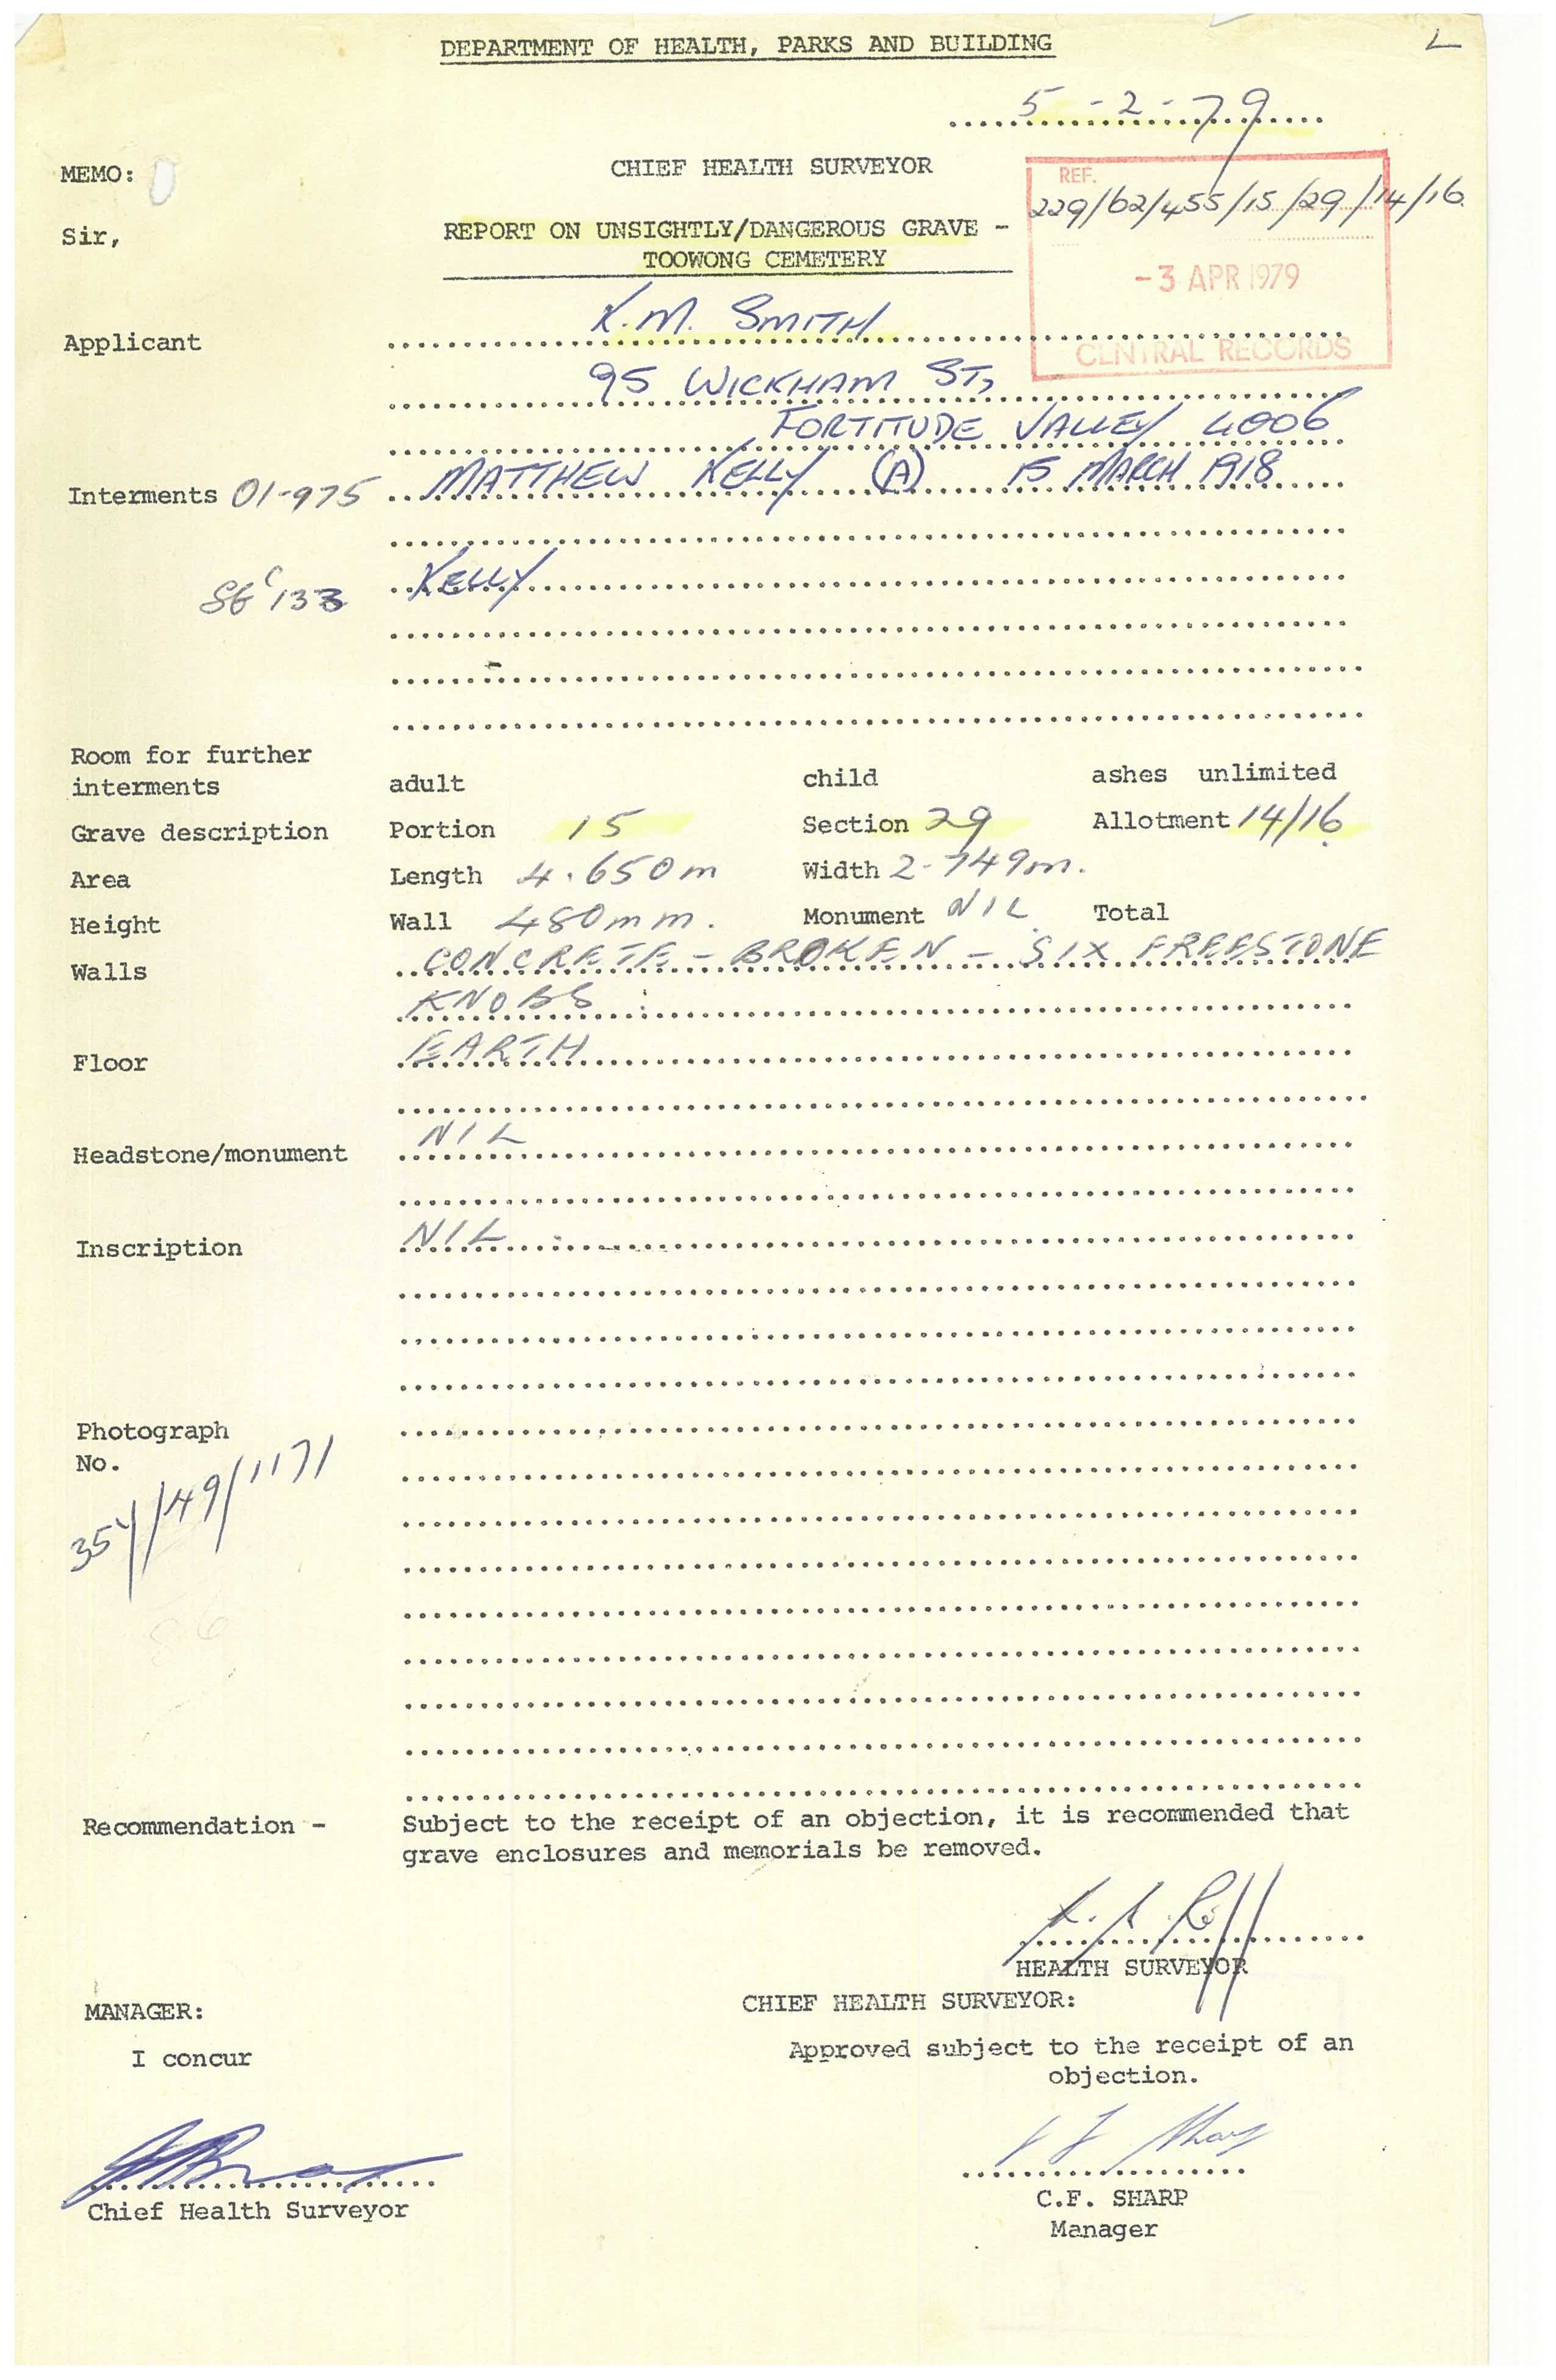 L
DEPARTMENT OF HEALTH, PARKS AND BUILDING
5-2-79
MEMO:
CHIEF HEALTH SURVEYOR
REF.
229/62/455/15/29/14/16
Sir,
REPORT ON UNSIGHTLY/DANGEROUS GRAVE -
TOOWONG CEMETERY
-3 APR 1979
CENTRAL RECORDS
Applicant K.M. SMITH
95 WICKHAM ST,
FORTITUDE VALLEY 4006
Interments 01-975 MATTHEW KELLY (A) 15 MARCH 1918
KELLY
Room for further
interments adult child ashes unlimited
Grave description Portion 15 Section 29 Allotment 14/16
Area Length 4.650m Width 2-749m.
Height Wall 480mm. Monument NIL Total
Walls CONCRETE - BROKEN - SIX FREESTONE
KNOBS
Floor EARTH
Headstone/monument NIL
Inscription NIL
Photograph
No.
Recommendation - Subject to the receipt of an objection, it is recommended that
grave enclosures and memorials be removed.
HEALTH SURVEYOR
MANAGER:
CHIEF HEALTH SURVEYOR:
I concur
Approved subject to the receipt of an
objection.
Chief Health Surveyor
C.F. SHARP
Manager